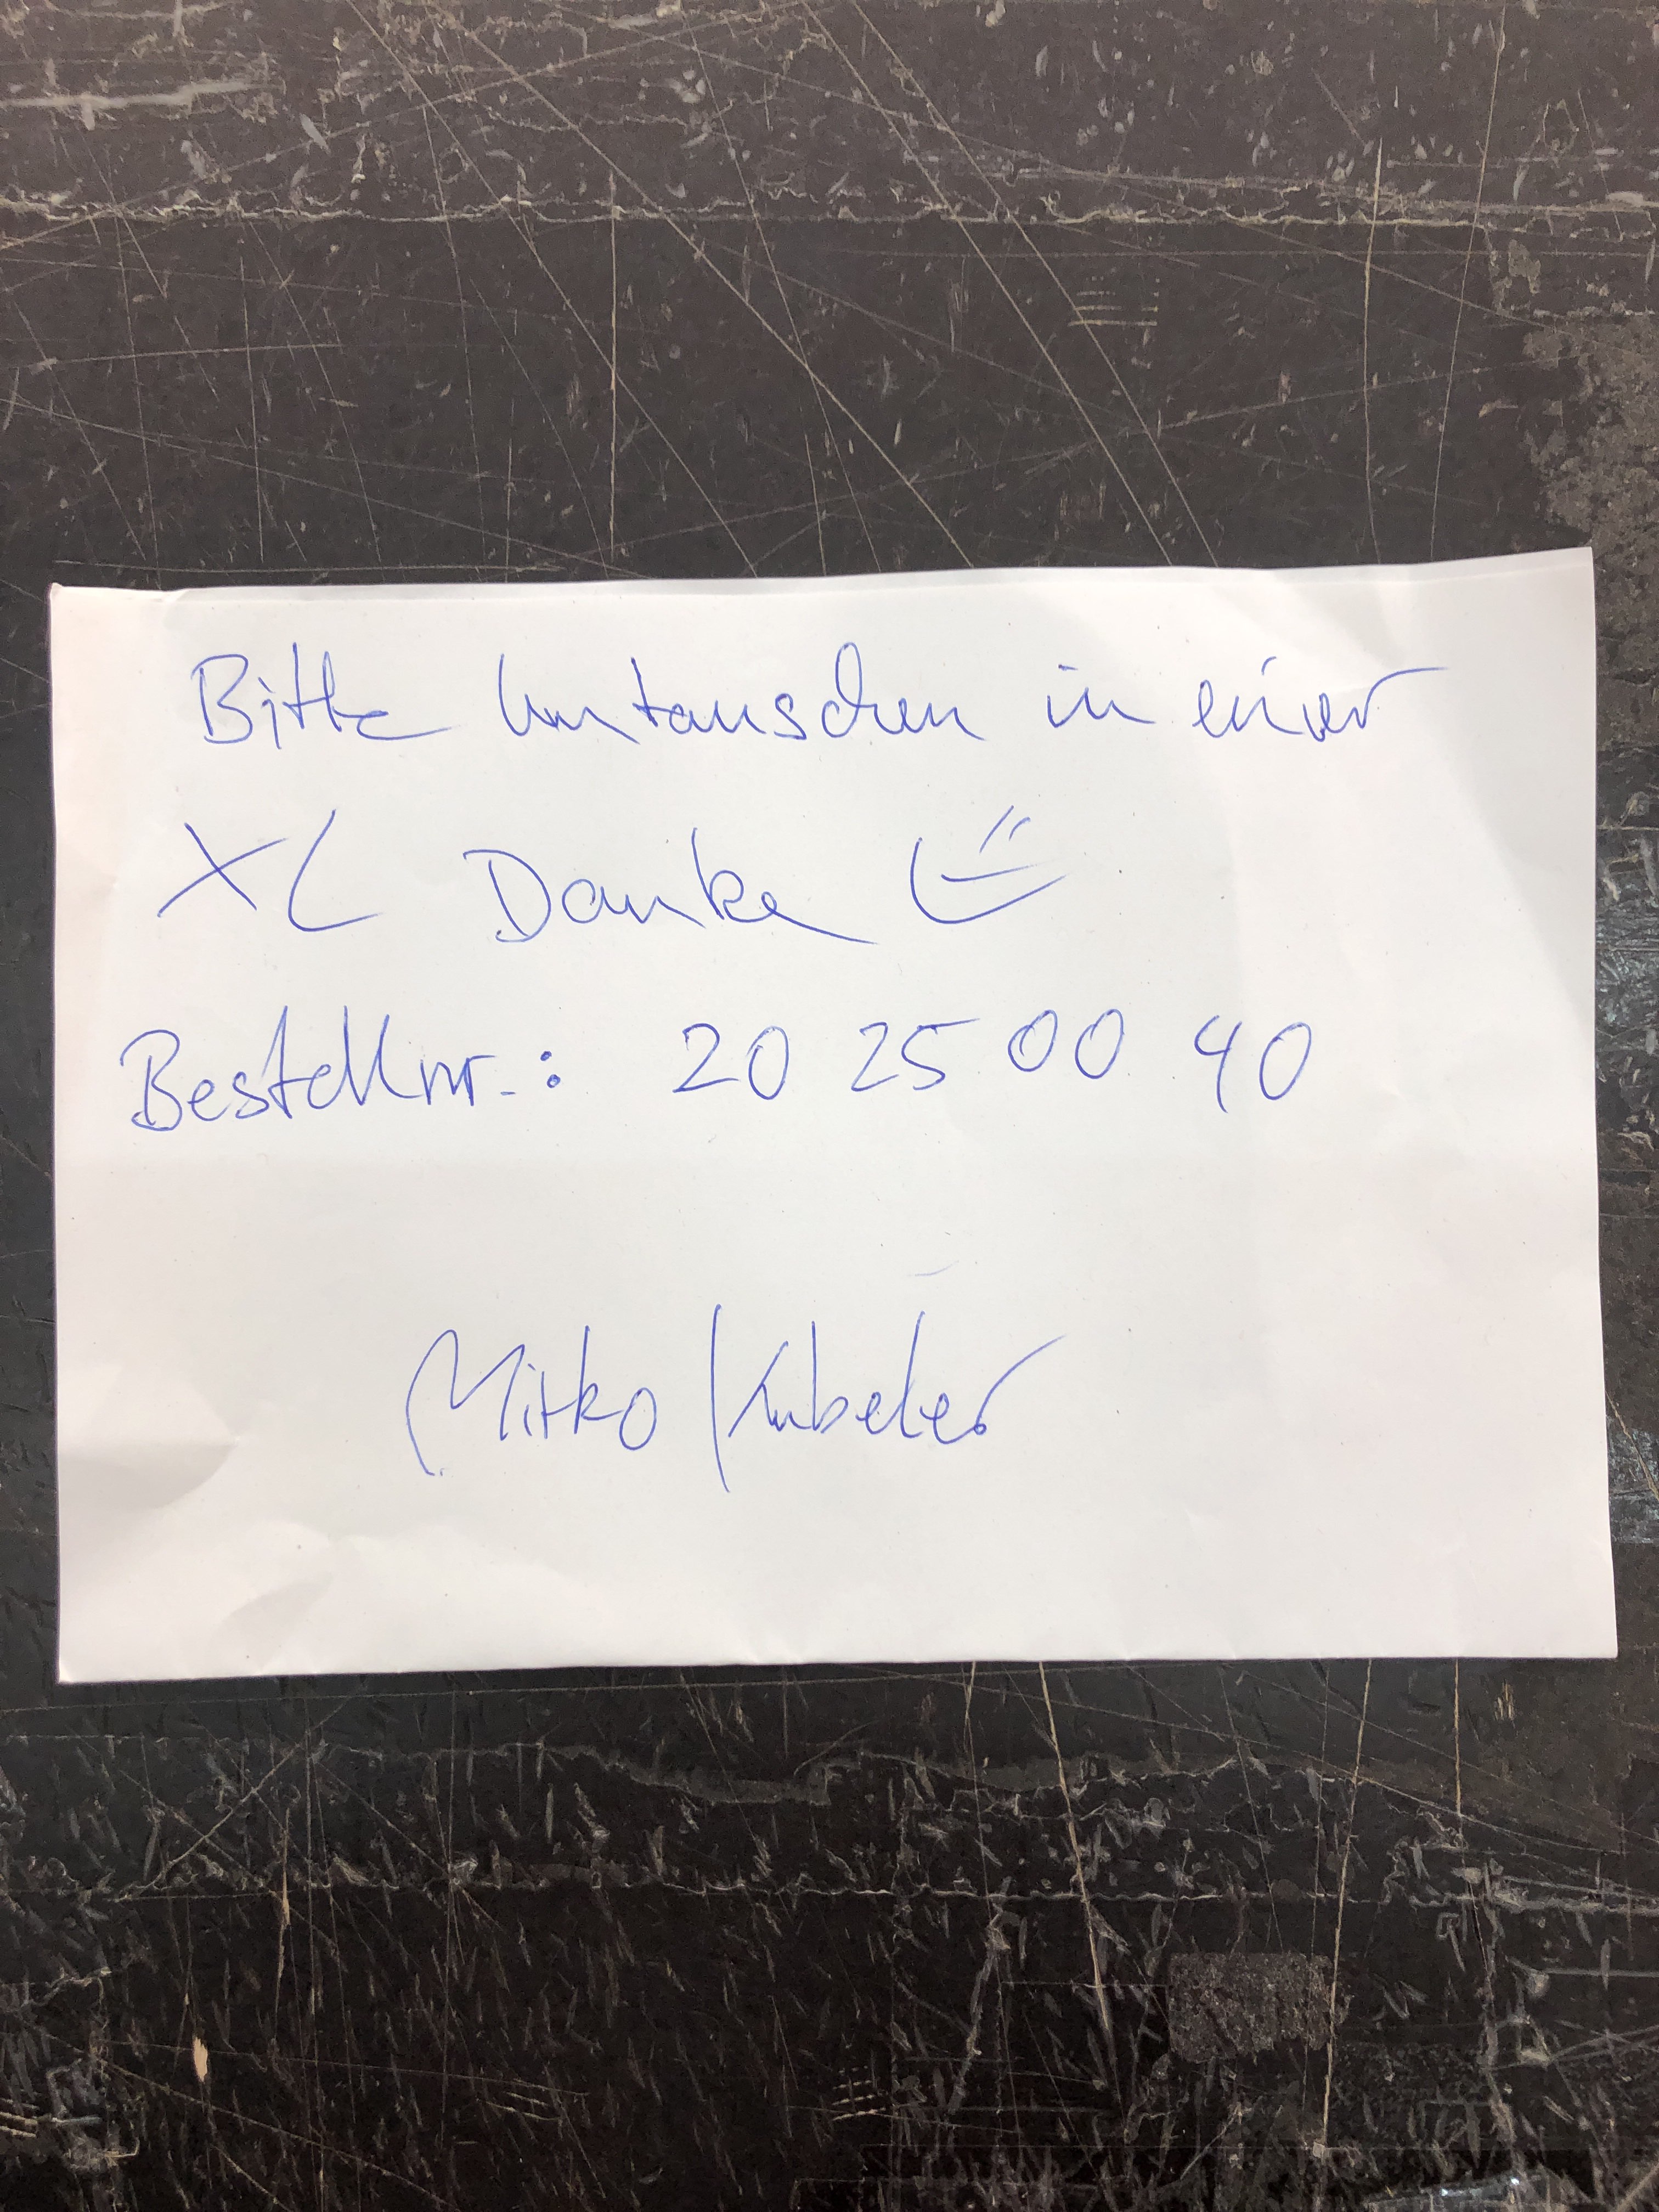 Bitte umtauschen in einer
XL Danke
Bestellnr.: 20 25 00 40
Mirko Kubeler